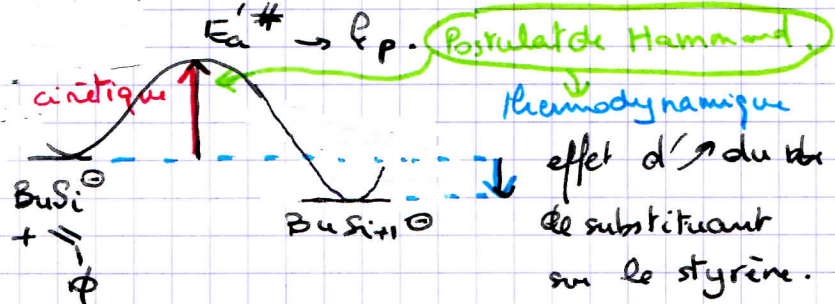 Ea'# → kp. Postulat de Hammond.
cinétique
thermodynamique
effet d'↗ du nbre
de substituant
sur le styrène.
BuSi⊖
+
BuSi+1⊖
φ